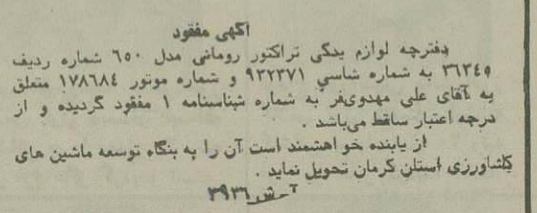 آگهی مفقود
دفترچه لوازم یدکی تراکتور رومانی مدل ۶۵۰ شماره ردیف
۳۶۳۴۵ به شماره شاسی ۹۳۲۳۷۱ و شماره موتور ۱۷۸۶۸۴ متعلق
به آقای علی مهدوی‌فر به شماره شناسنامه ۱ مفقود گردیده و از
درجه اعتبار ساقط می‌باشد .
از یابنده خواهشمند است آن را به بنگاه توسعه ماشین های
کشاورزی استان کرمان تحویل نماید .
آ-ش ۳۹۳۶